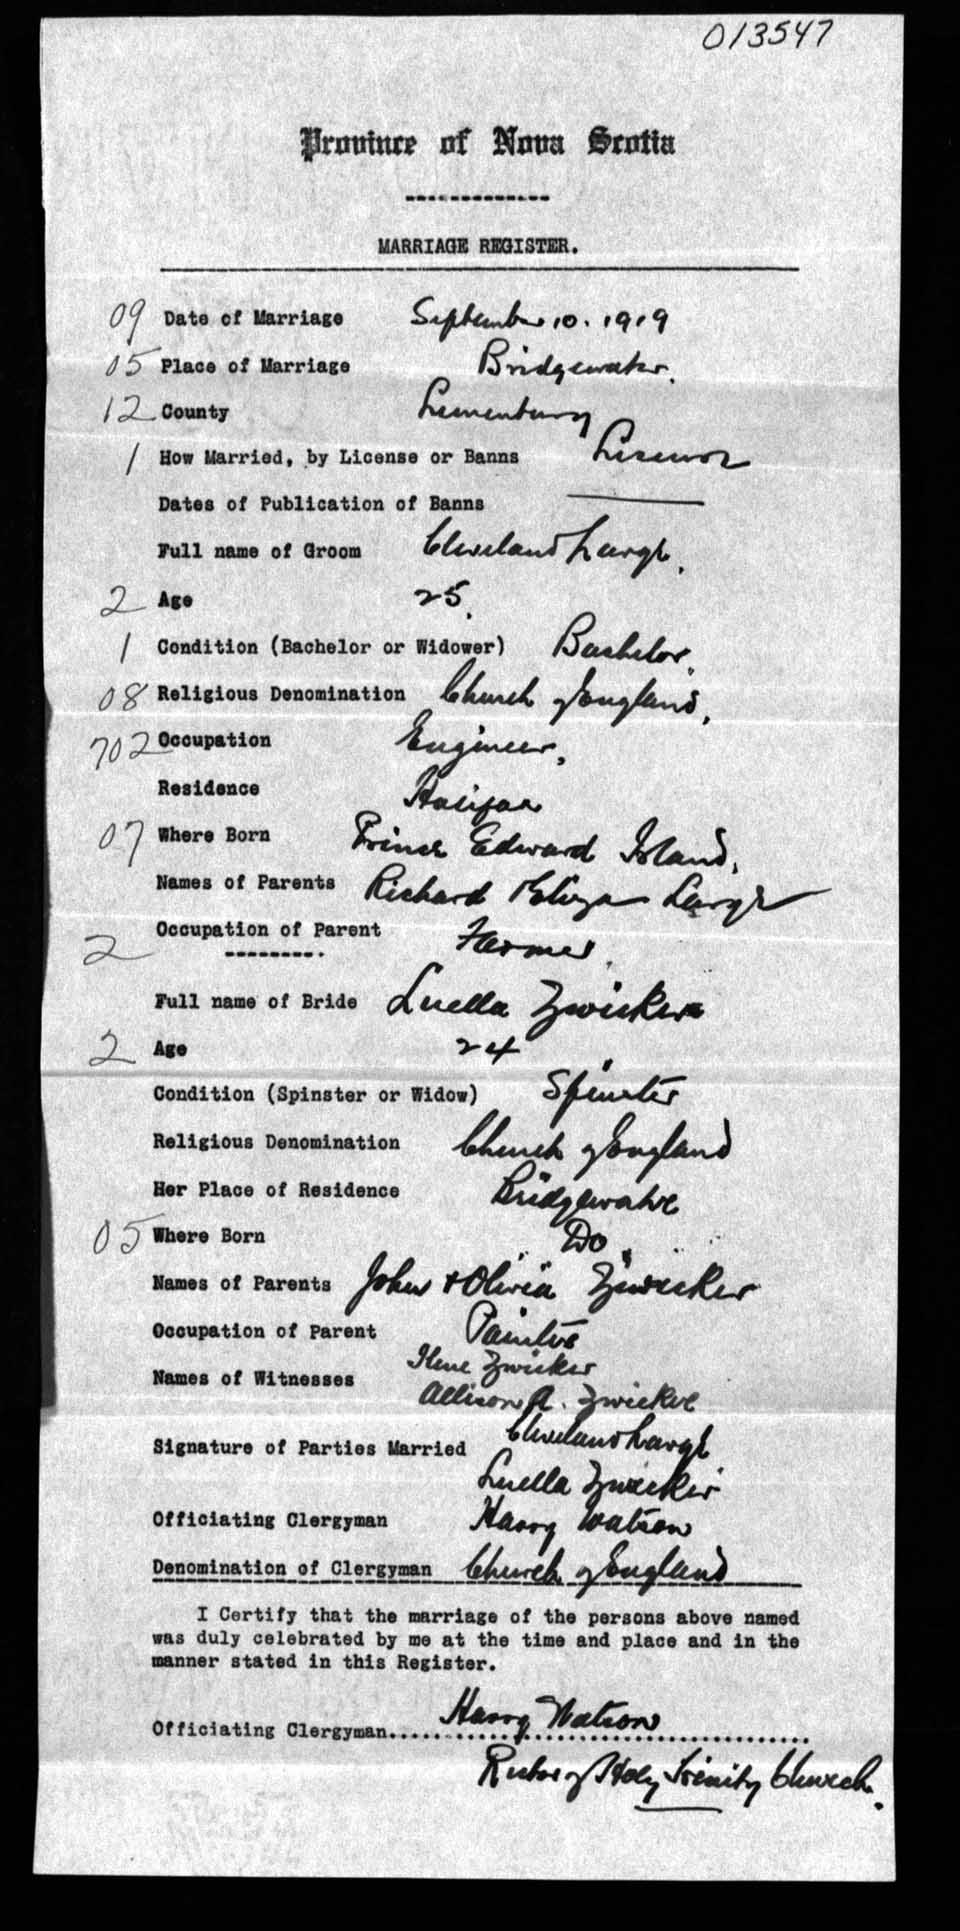 013547
Province of Nova Scotia
MARRIAGE REGISTER.
09 Date of Marriage September 10. 1919
05 Place of Marriage Bridgewater.
12 County Lunenburg
1 How Married, by License or Banns License
Dates of Publication of Banns ———
Full name of Groom Cleveland Large.
2 Age 25.
1 Condition (Bachelor or Widower) Bachelor.
08 Religious Denomination Church of England.
702 Occupation Engineer,
Residence Halifax
07 Where Born Prince Edward Island.
Names of Parents Richard + Eliza Large
2 Occupation of Parent Farmer.
Full name of Bride Luella Zwicker
2 Age 24
Condition (Spinster or Widow) Spinster
Religious Denomination Church of England
Her Place of Residence Bridgewater
05 Where Born Do.
Names of Parents John + Olivia Zwicker
Occupation of Parent Painter
Names of Witnesses Ilene Zwicker
Allison A. Zwicker
Signature of Parties Married Cleveland Large
Luella Zwicker
Officiating Clergyman Harry Watson
Denomination of Clergyman Church of England
I Certify that the marriage of the persons above named
was duly celebrated by me at the time and place and in the
manner stated in this Register.
Officiating Clergyman..... Harry Watson
Rector of Holy Trinity Church.